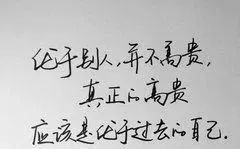 优于别人，并不高贵，
真正的高贵
应该是优于过去的自己.